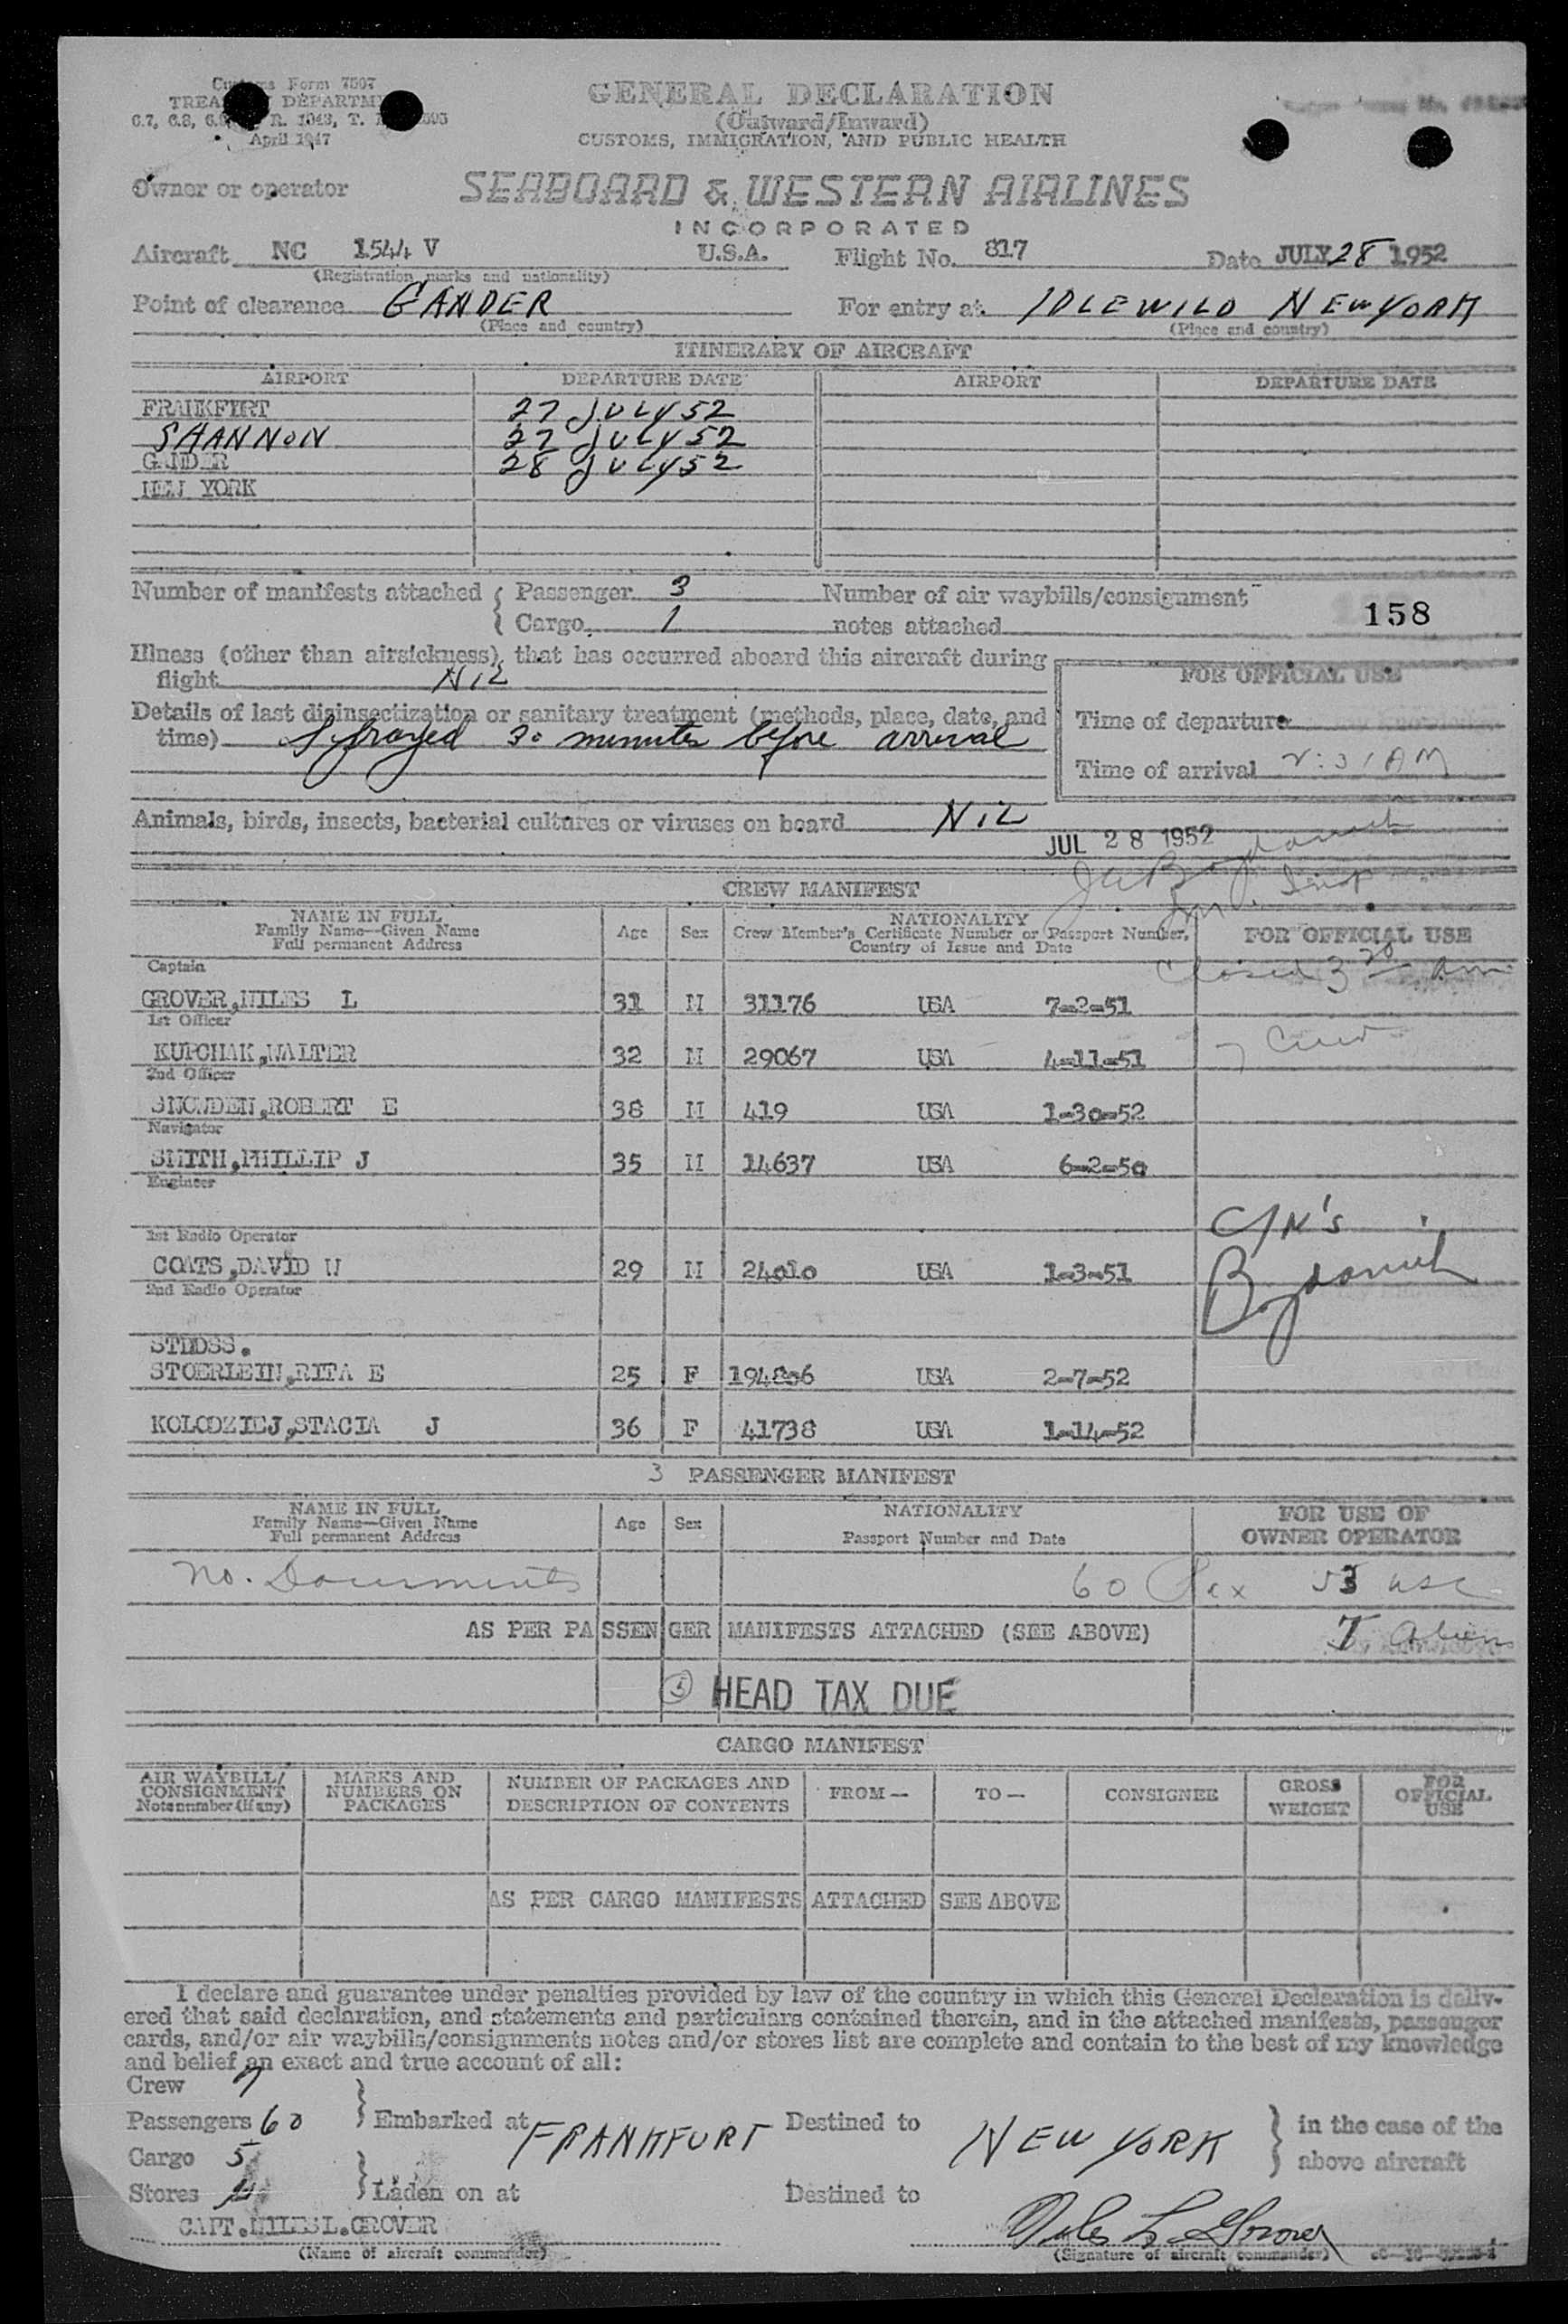 Form 7507
GENERAL DECLARATION
(Outward/Inward)
April 1947
CUSTOMS, IMMIGRATION, AND PUBLIC HEALTH
Owner or operator SEABOARD & WESTERN AIRLINES
INCORPORATED
Aircraft NC 1544 V U.S.A. Flight No. 817 Date JULY 28 1952
(Registration marks and nationality)
Point of clearance GANDER For entry at IDLEWILD NEW YORK
(Place and country) (Place and country)
ITINERARY OF AIRCRAFT
AIRPORT DEPARTURE DATE AIRPORT DEPARTURE DATE
FRANKFURT 27 JULY 52
SHANNON 27 JULY 52
GANDER 28 JULY 52
NEW YORK
Number of manifests attached { Passenger 3 Number of air waybills/consignment
Cargo 1 notes attached 158
Illness (other than airsickness) that has occurred aboard this aircraft during
flight NIL
FOR OFFICIAL USE
Details of last disinsectization or sanitary treatment (methods, place, date, and
time) Sprayed 30 minutes before arrival
Time of departure
Time of arrival 2:31 AM
Animals, birds, insects, bacterial cultures or viruses on board NIL
JUL 28 1952
CREW MANIFEST
NAME IN FULL
Family Name—Given Name
Full permanent Address
Age Sex
NATIONALITY
Crew Member's Certificate Number or Passport Number,
Country of Issue and Date
FOR OFFICIAL USE
Closed 3 20 am
Captain
GROVER,NILES L 31 M 31176 USA 7-2-51
1st Officer
KUPCHAK,WALTER 32 M 29067 USA 4-11-51
7 Crew
2nd Officer
SNOWDEN,ROBERT E 38 M 419 USA 1-30-52
Navigator
SMITH,PHILLIP J 35 M 14637 USA 6-2-50
Engineer
C/N's
1st Radio Operator
COATS,DAVID W 29 M 24010 USA 1-3-51
2nd Radio Operator
STDDSS.
STOERLEIN,RITA E 25 F 194806 USA 2-7-52
KOLODZIEJ,STACIA J 36 F 41738 USA 1-14-52
3 PASSENGER MANIFEST
NAME IN FULL
Family Name—Given Name
Full permanent Address
Age Sex
NATIONALITY
Passport Number and Date
FOR USE OF
OWNER OPERATOR
No. Documents 60 Pax 53 USC
AS PER PASSENGER MANIFESTS ATTACHED (SEE ABOVE) 7 Aliens
HEAD TAX DUE
CARGO MANIFEST
AIR WAYBILL/
CONSIGNMENT
Note number (if any)
MARKS AND
NUMBERS ON
PACKAGES
NUMBER OF PACKAGES AND
DESCRIPTION OF CONTENTS
FROM— TO— CONSIGNEE
GROSS
WEIGHT
FOR
OFFICIAL
USE
AS PER CARGO MANIFESTS ATTACHED SEE ABOVE
I declare and guarantee under penalties provided by law of the country in which this General Declaration is deliv-
ered that said declaration, and statements and particulars contained therein, and in the attached manifests, passenger
cards, and/or air waybills/consignments notes and/or stores list are complete and contain to the best of my knowledge
and belief an exact and true account of all:
Crew 7
Passengers 60 } Embarked at FRANKFURT Destined to NEW YORK } in the case of the
above aircraft
Cargo 5
Stores } Laden on at Destined to
CAPT.NILES L.GROVER Niles L. Grover
(Name of aircraft commander) (Signature of aircraft commander)